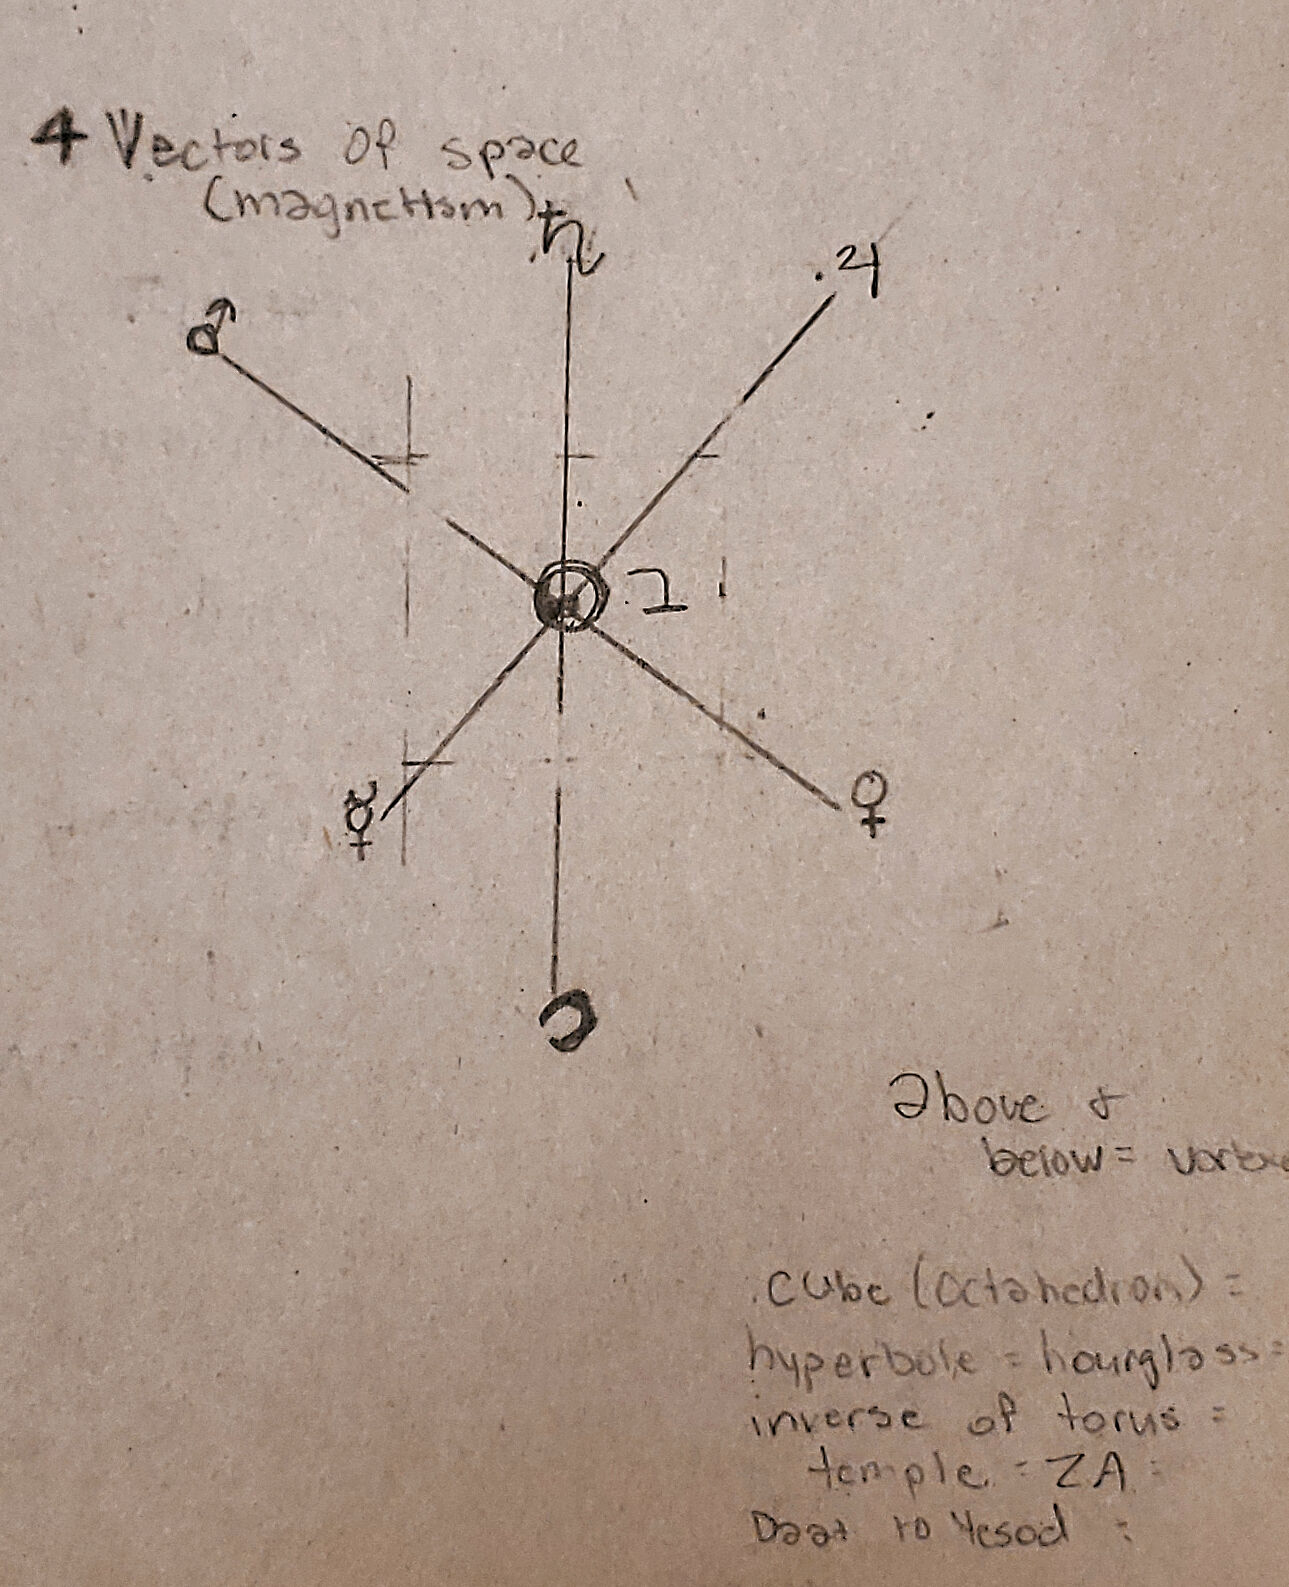 4 Vectors of space
(magnetism)
♄
♃
♂
☿
♀
above &
below =
cube (octahedron) =
hyperbole = hourglass =
inverse of torus =
temple = ZA =
Daat to Yesod =